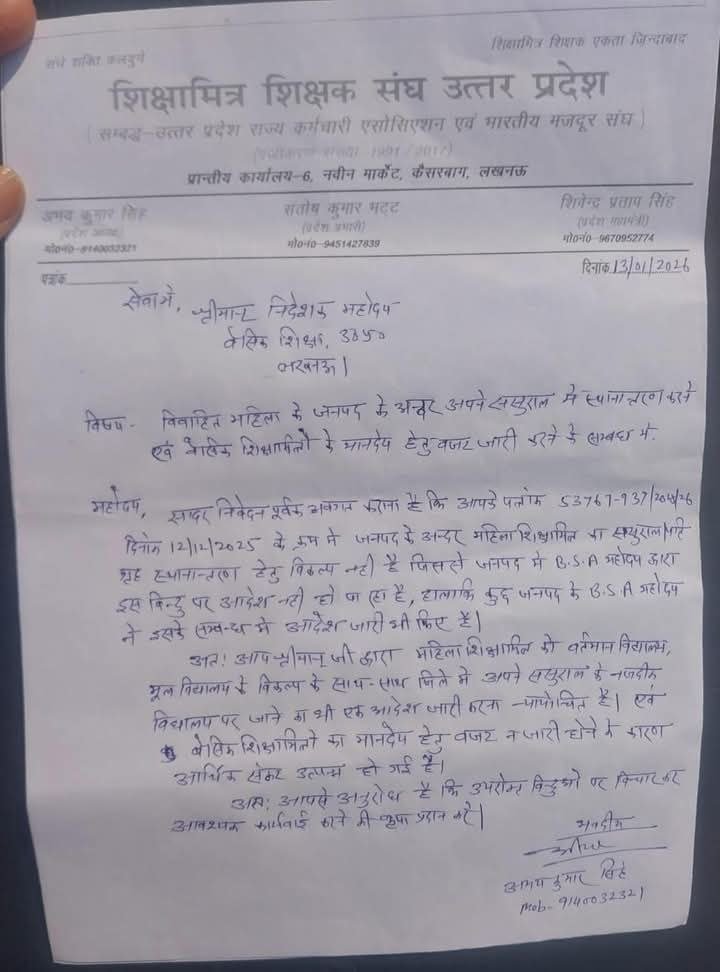 संघे शक्ति कलयुगे
शिक्षामित्र शिक्षक एकता ज़िन्दाबाद
शिक्षामित्र शिक्षक संघ उत्तर प्रदेश
( सम्बद्ध-उत्तर प्रदेश राज्य कर्मचारी एसोसिएशन एवं भारतीय मजदूर संघ )
(पंजीकरण संख्या- 1991 /2017)
प्रान्तीय कार्यालय-6, नवीन मार्केट, कैसरबाग, लखनऊ
अभय कुमार सिंह
(प्रदेश अध्यक्ष)
मो०नं०-9140032321
संतोष कुमार भट्ट
(प्रदेश प्रभारी)
मो०नं०-9451427839
शिवेन्द्र प्रताप सिंह
(प्रदेश महामंत्री)
मो०नं०-9670952774
पत्रांक
दिनांक 13/01/2026
सेवा में, श्रीमान् निदेशक महोदय
बेसिक शिक्षा, उ०प्र०
लखनऊ।
विषय- विवाहित महिला के जनपद के अन्दर अपने ससुराल में स्थानान्तरण करने
एवं बेसिक शिक्षामित्रों के मानदेय हेतु बजट जारी करने के सम्बन्ध में.
महोदय, सादर निवेदन पूर्वक अवगत कराना है कि आपके पत्रांक 53767-937/2025/26
दिनांक 12/12/2025 के क्रम में जनपद के अन्दर महिला शिक्षामित्र का ससुराल/पति
गृह स्थानान्तरण हेतु विकल्प नही है जिससे जनपद में B.S.A महोदय द्वारा
इस बिन्दु पर आदेश नही हो पा रहा है, हालांकि कुछ जनपद के B.S.A महोदय
ने इसके सम्बन्ध में आदेश जारी भी किए है।
अतः आप श्रीमान् जी द्वारा महिला शिक्षामित्र को वर्तमान विद्यालय,
मूल विद्यालय के विकल्प के साथ-साथ जिले में अपने ससुराल के नजदीक
विद्यालय पर जाने का भी एक आदेश जारी करना न्यायोचित है। एवं
बेसिक शिक्षामित्रों का मानदेय हेतु बजट न जारी होने के कारण
आर्थिक संकट उत्पन्न हो गई है।
अतः आपसे अनुरोध है कि उपरोक्त बिन्दुओ पर विचार कर
आवश्यक कार्यवाई करने की कृपा प्रदान करें।
भवदीय
अभय कुमार सिंह
Mob- 9140032321